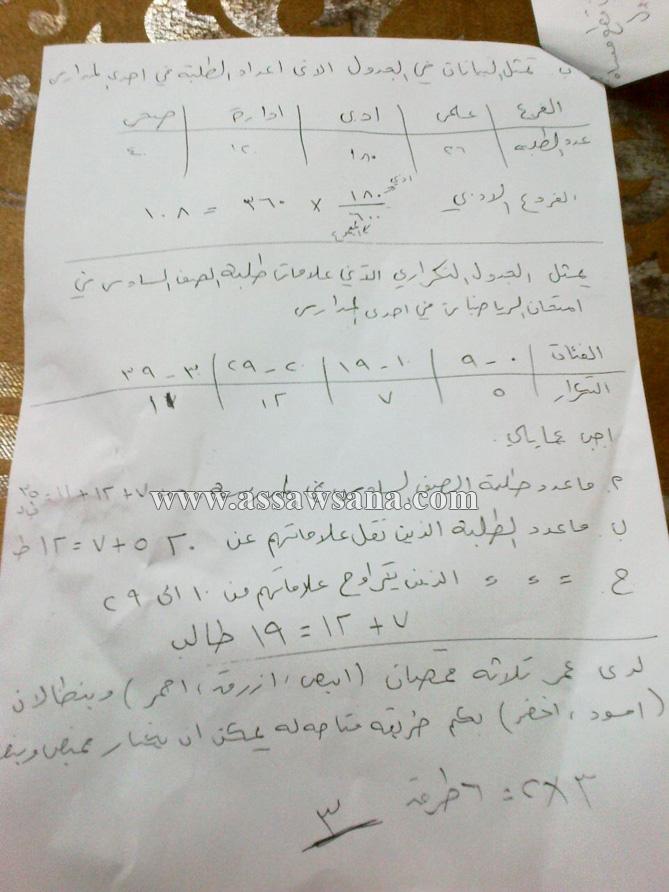 ب. تمثل البيانات في الجدول الاتي اعداد الطلبة في احدى المدارس
الفرع علمي ادبي ادارة صحي
عدد الطلبه ٢٦ ١٨٠ ١٢٠ ٤٠
الفرع الادبي ١٨٠ ادبي / ٦٠٠ المجموع × ٣٦٠ = ١٠٨
يمثل الجدول التكراري الاتي علامات طلبة الصف السادس في
امتحان الرياضيات في احدى المدارس
الفئات ٠ - ٩ ١٠ - ١٩ ٢٠ - ٢٩ ٣٠ - ٣٩
التكرار ٥ ٧ ١٢ ١١
اجب عما يأتي.
م. ماعدد طلبة الصف السادس ٧ + ١٢ + ١١ = ٣٥
www.assawsana.com
ب. ماعدد الطلبة الذين تقل علاماتهم عن ٢٠ ٥ + ٧ = ١٢ ط
ج. = = = الذين يتراوح علاماتهم من ١٠ الى ٢٩
٧ + ١٢ = ١٩ طالب
لدى عمر ثلاثه قمصان (ابيض، ازرق، احمر) وبنطالان
(اسود، اخضر) بكم طريقه متاحه له يمكن ان يختار قميص وبنط
٣ × ٢ = ٦ طرق
٣